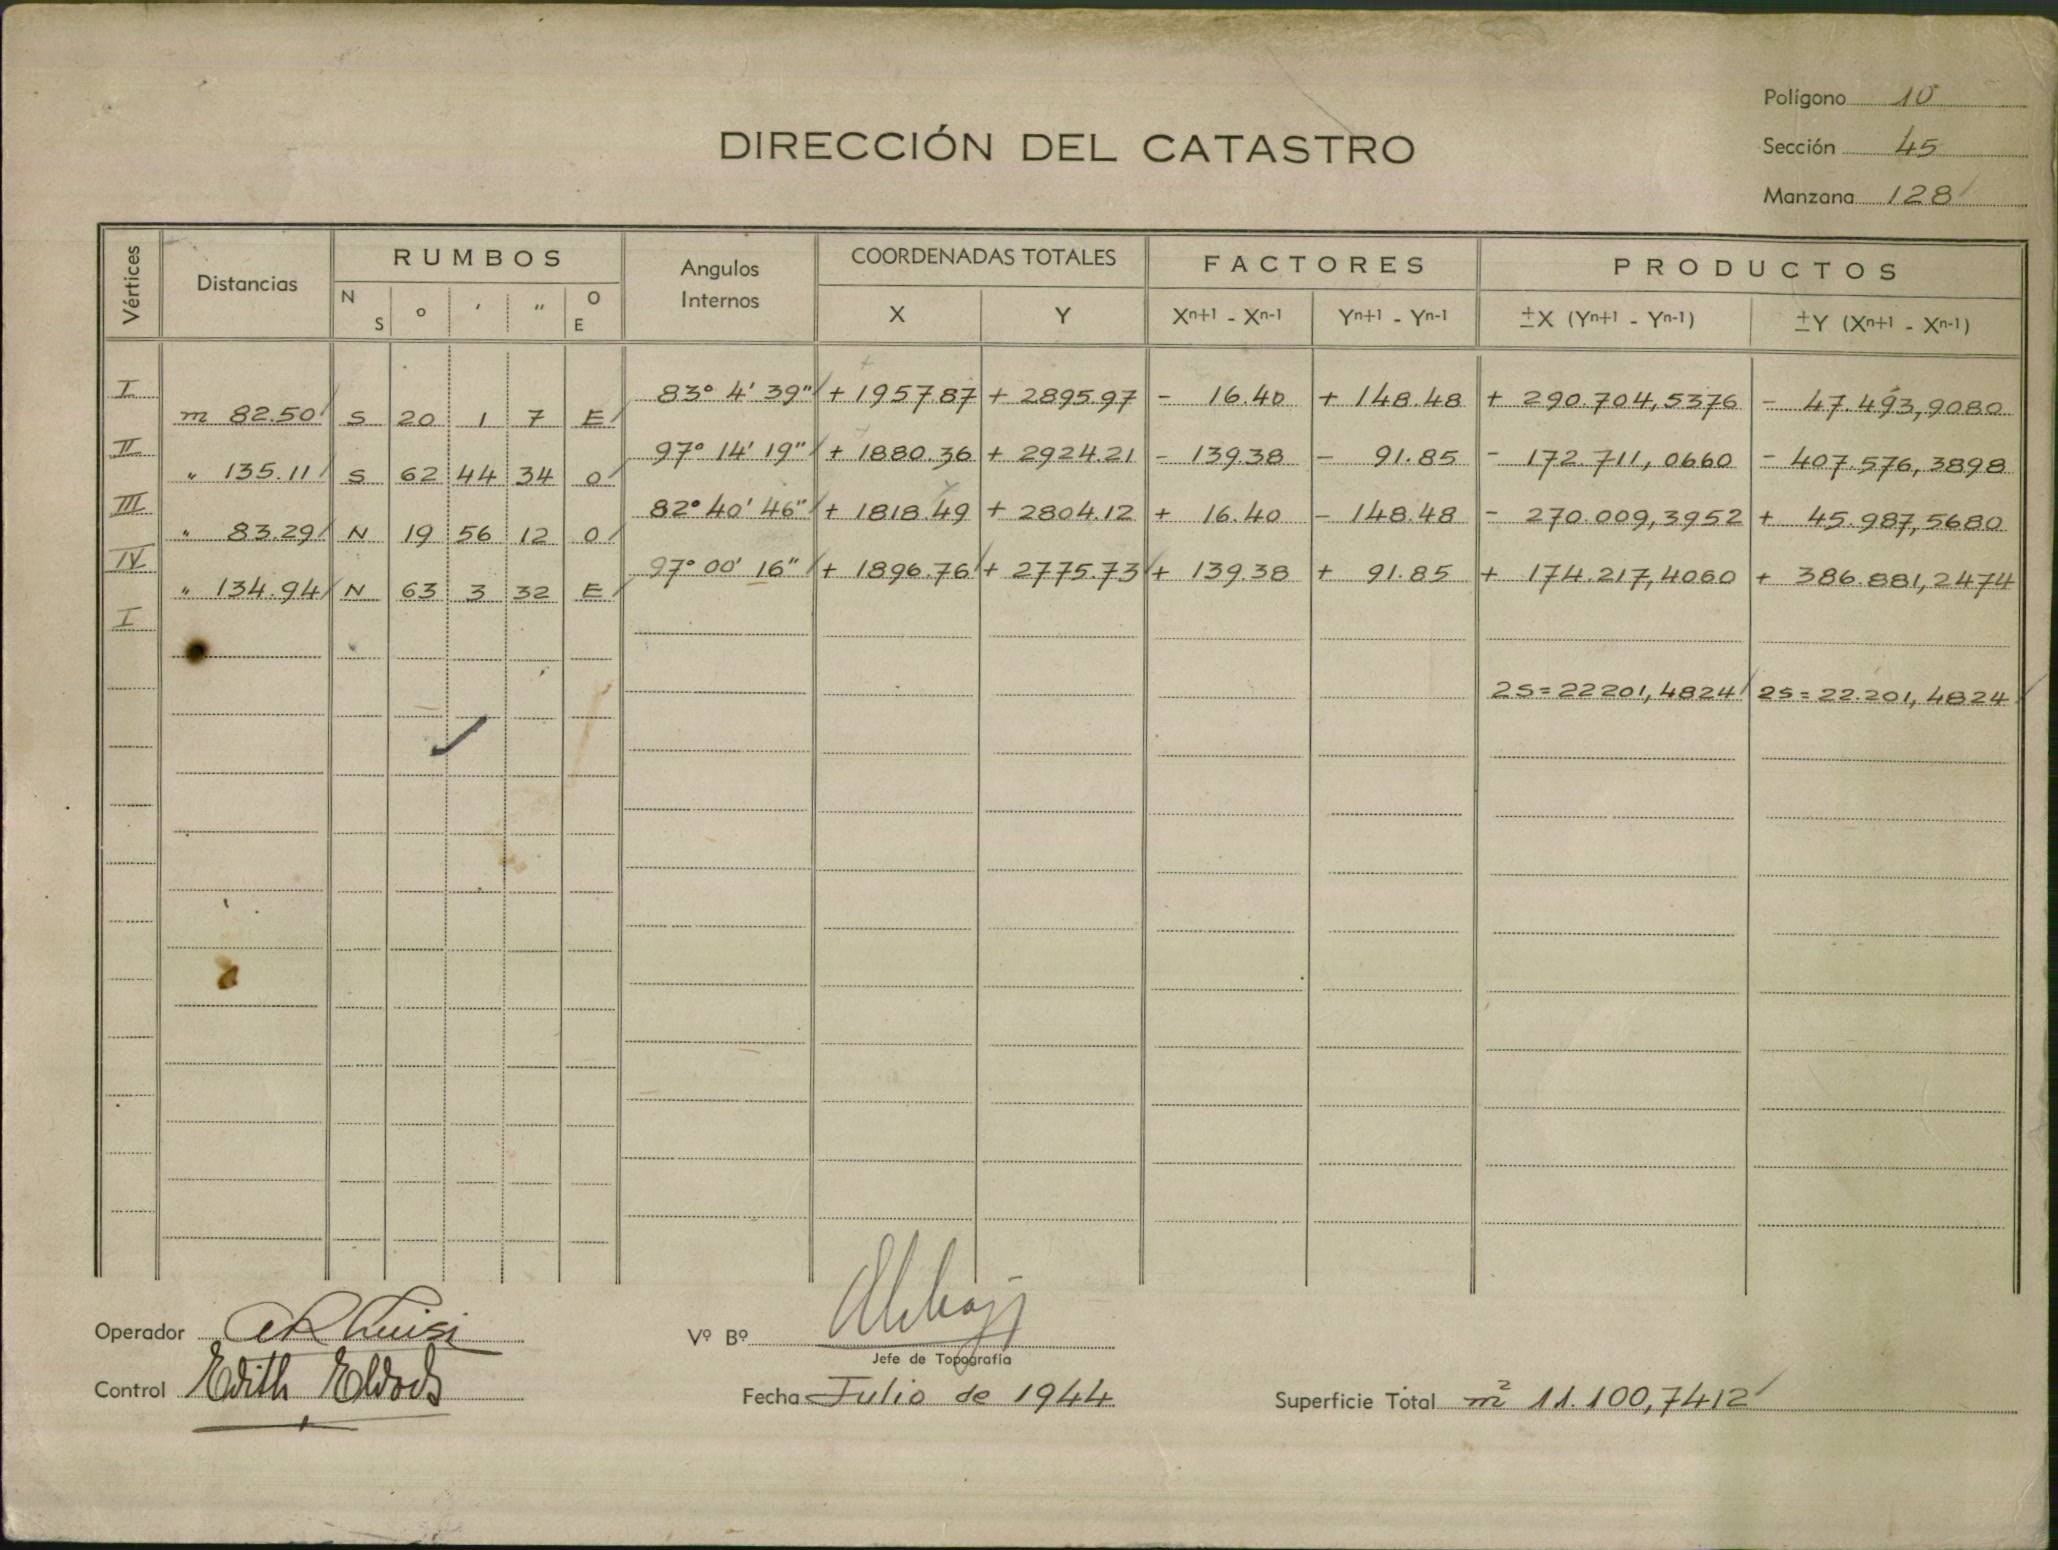 Polígono 10
DIRECCIÓN DEL CATASTRO
Sección 45
Manzana 128
Vértices Distancias RUMBOS Angulos Internos COORDENADAS TOTALES FACTORES PRODUCTOS
N S ° ' " O E X Y Xn+1 - Xn-1 Yn+1 - Yn-1 ±X (Yn+1 - Yn-1) ±Y (Xn+1 - Xn-1)
I 83° 4' 39" + 1957.87 + 2895.97 - 16.40 + 148.48 + 290.704,5376 - 47.493,9080
m 82.50 S 20 1 7 E
II 97° 14' 19" + 1880.36 + 2924.21 - 139.38 - 91.85 - 172 711,0660 - 407.576,3898
" 135.11 S 62 44 34 O
III 82° 40' 46" + 1818.49 + 2804.12 + 16.40 - 148.48 - 270.009,3952 + 45.987,5680
" 83.29 N 19 56 12 O
IV 97° 00' 16" + 1896.76 + 2775.73 + 139.38 + 91.85 + 174.217,4060 + 386.881,2474
" 134.94 N 63 3 32 E
I
2S = 22201,4824 2S = 22.201,4824
Operador
Vº Bº
Jefe de Topografía
Control Edith
Fecha Julio de 1944
Superficie Total m² 11.100,7412